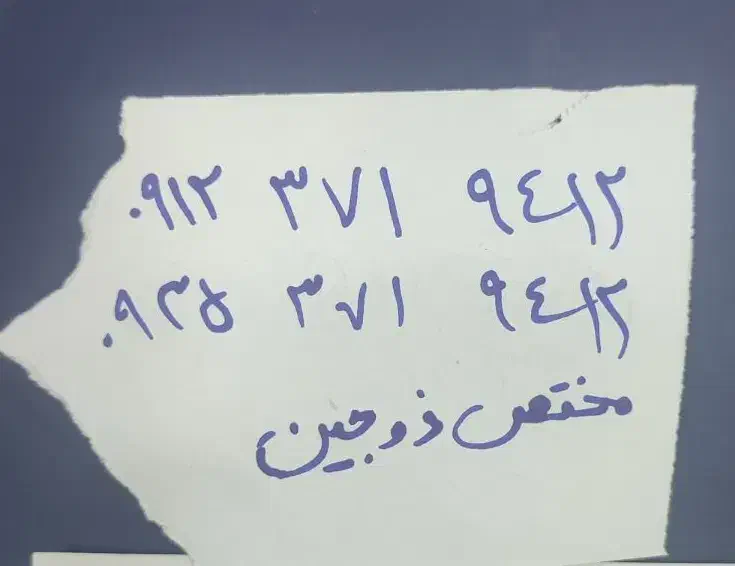 ۰۹۱۲ ۳۷۱ ۹٤۱۲
۰۹۳۵ ۳۷۱ ۹٤۱۲
مختص زوجین